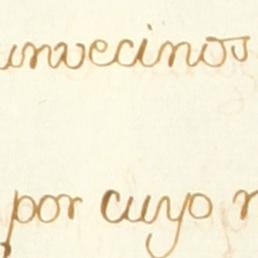 unvecinos
por cuyo